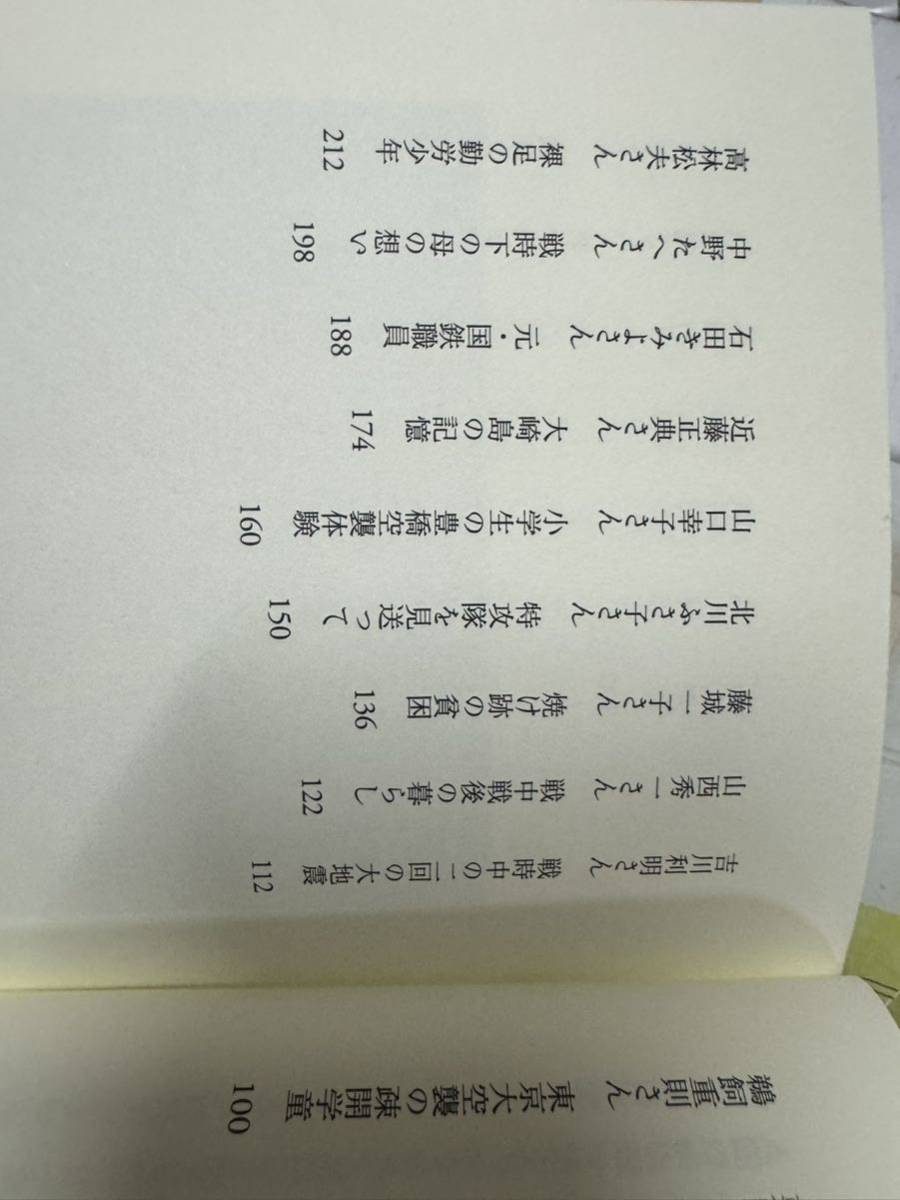 鵜飼重則さん 東京大空襲の疎開学童 100
吉川利明さん 戦時中の二回の大地震 112
山西秀一さん 戦中戦後の暮らし 122
藤城一子さん 焼け跡の貧困 136
北川ふさ子さん 特攻隊を見送って 150
山口幸子さん 小学生の豊橋空襲体験 160
近藤正典さん 大崎島の記憶 174
石田きみよさん 元・国鉄職員 188
中野たへさん 戦時下の母の想い 198
高林松夫さん 裸足の勤労少年 212